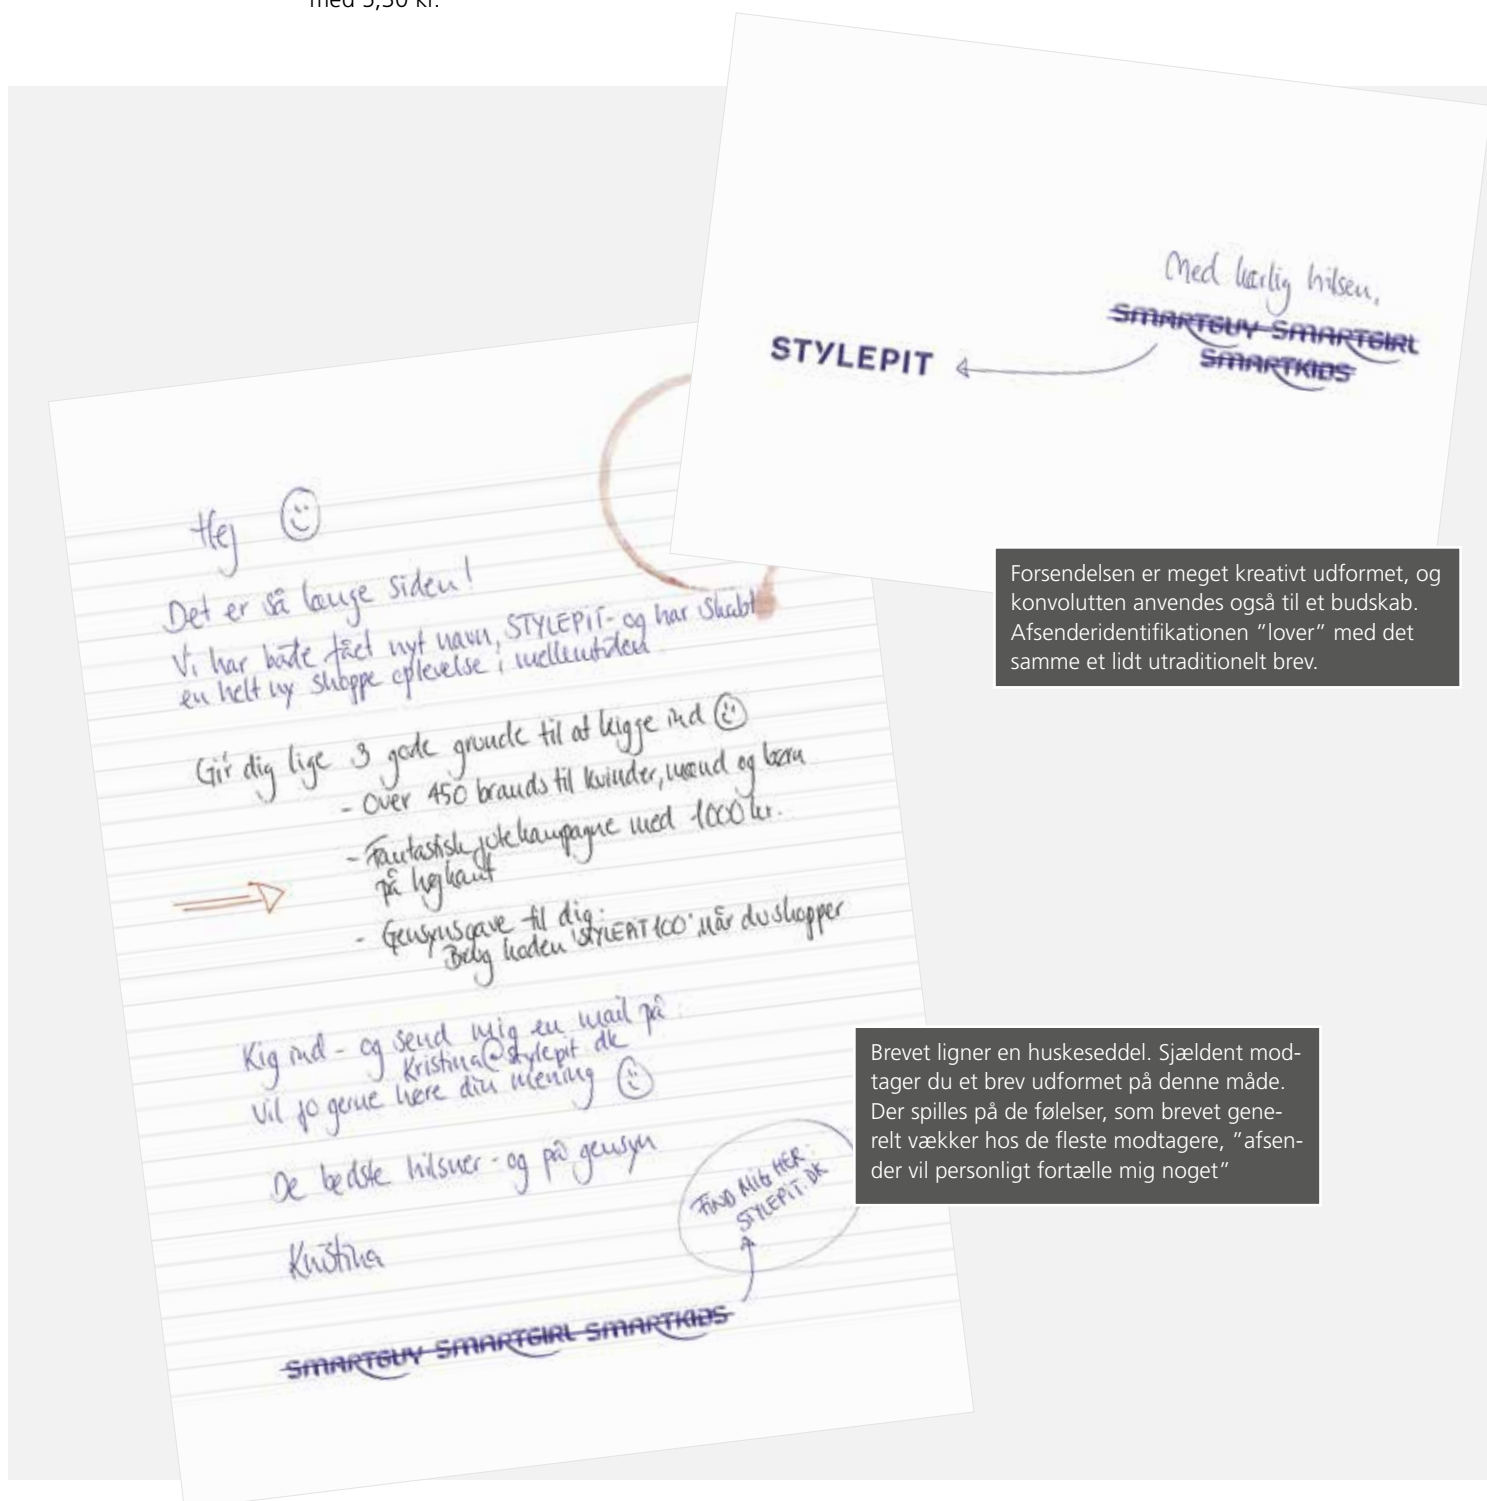 med 5,50 kr.
Med kærlig hilsen,
SMARTGUY SMARTGIRL
SMARTKIDS
STYLEPIT
Forsendelsen er meget kreativt udformet, og
konvolutten anvendes også til et budskab.
Afsenderidentifikationen ”lover” med det
samme et lidt utraditionelt brev.
Hej
Det er så længe siden!
Vi har både fået nyt navn, STYLEPIT - og har skabt
en helt ny shoppe oplevelse i mellemtiden
Gi'r dig lige 3 gode grunde til at kigge ind
- Over 450 brands til kvinder, mænd og børn
- Fantastisk julekampagne med 1000 kr.
på højkant
- Gensynsgave til dig:
Brug koden 'STYLEPIT100' når du shopper
Kig ind - og send mig en mail på:
Kristina@stylepit.dk
Vil jo gerne høre din mening
De bedste hilsner - og på gensyn
Kristina
FIND MIG HER:
STYLEPIT.DK
SMARTGUY SMARTGIRL SMARTKIDS
Brevet ligner en huskeseddel. Sjældent mod-
tager du et brev udformet på denne måde.
Der spilles på de følelser, som brevet gene-
relt vækker hos de fleste modtagere, ”afsen-
der vil personligt fortælle mig noget”